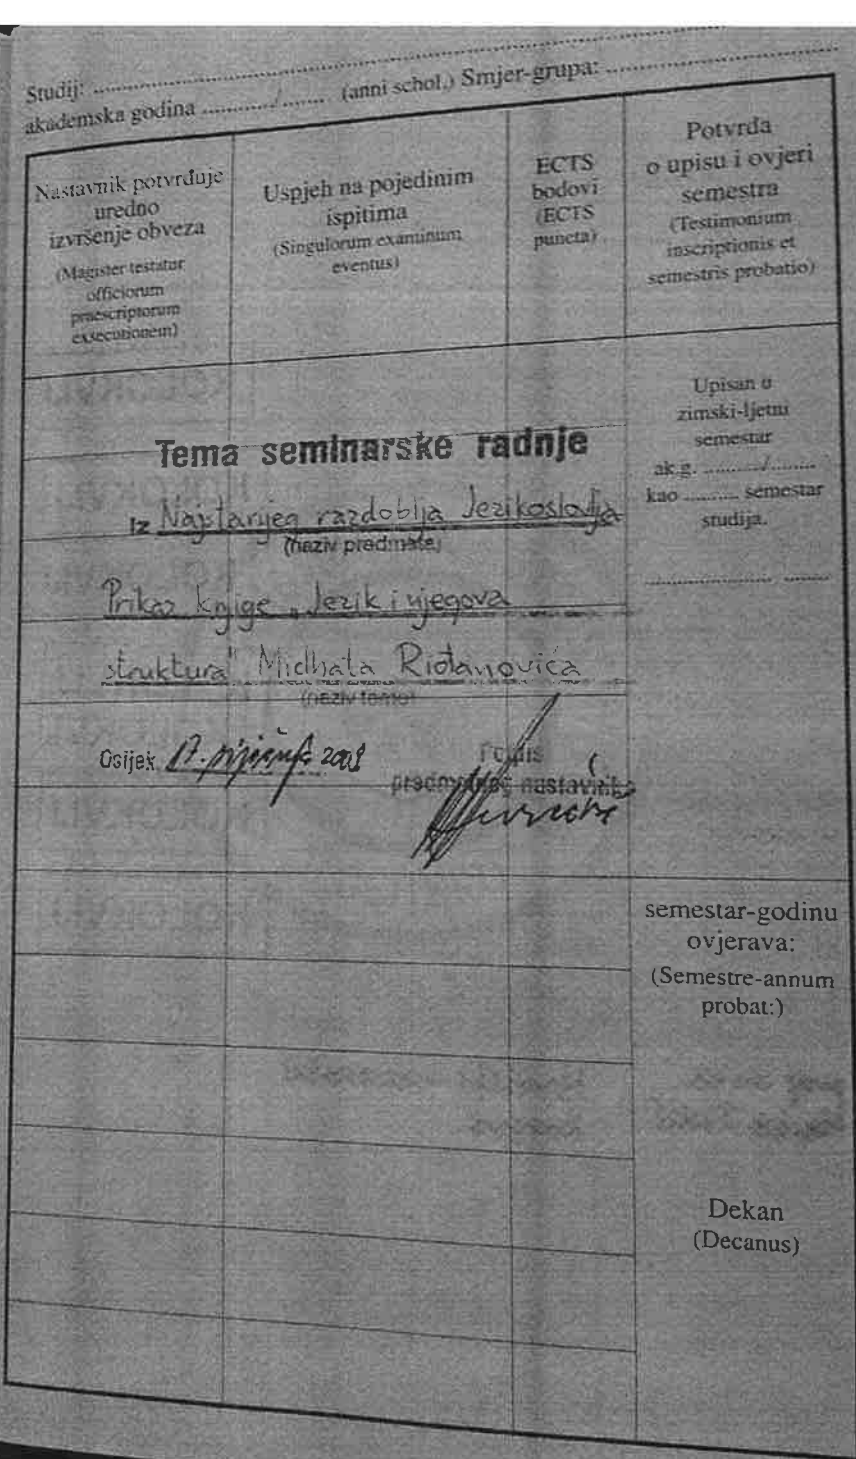 Studij: ..............................
akademska godina ............/........ (anni schol.) Smjer-grupa: ..............................
Nastavnik potvrđuje
uredno
izvršenje obveza
(Magister testatur
officiorum
praescriptorum
exsecutionem)
Uspjeh na pojedinim
ispitima
(Singulorum examinum
eventus)
ECTS
bodovi
(ECTS
puncta)
Potvrda
o upisu i ovjeri
semestra
(Testimonium
inscriptionis et
semestris probatio)
Upisan u
zimski-ljetni
semestar
ak.g. .........../.........
kao .......... semestar
studija.
Tema seminarske radnje
iz Najstarijeg razdoblja Jezikoslovlja
(naziv predmeta)
Prikaz knjige „Jezik i njegova
struktura" Midhata Riđanovića
(naziv teme)
Osijek 17.
Potpis
predmetnog nastavnika
semestar-godinu
ovjerava:
(Semestre-annum
probat:)
Dekan
(Decanus)